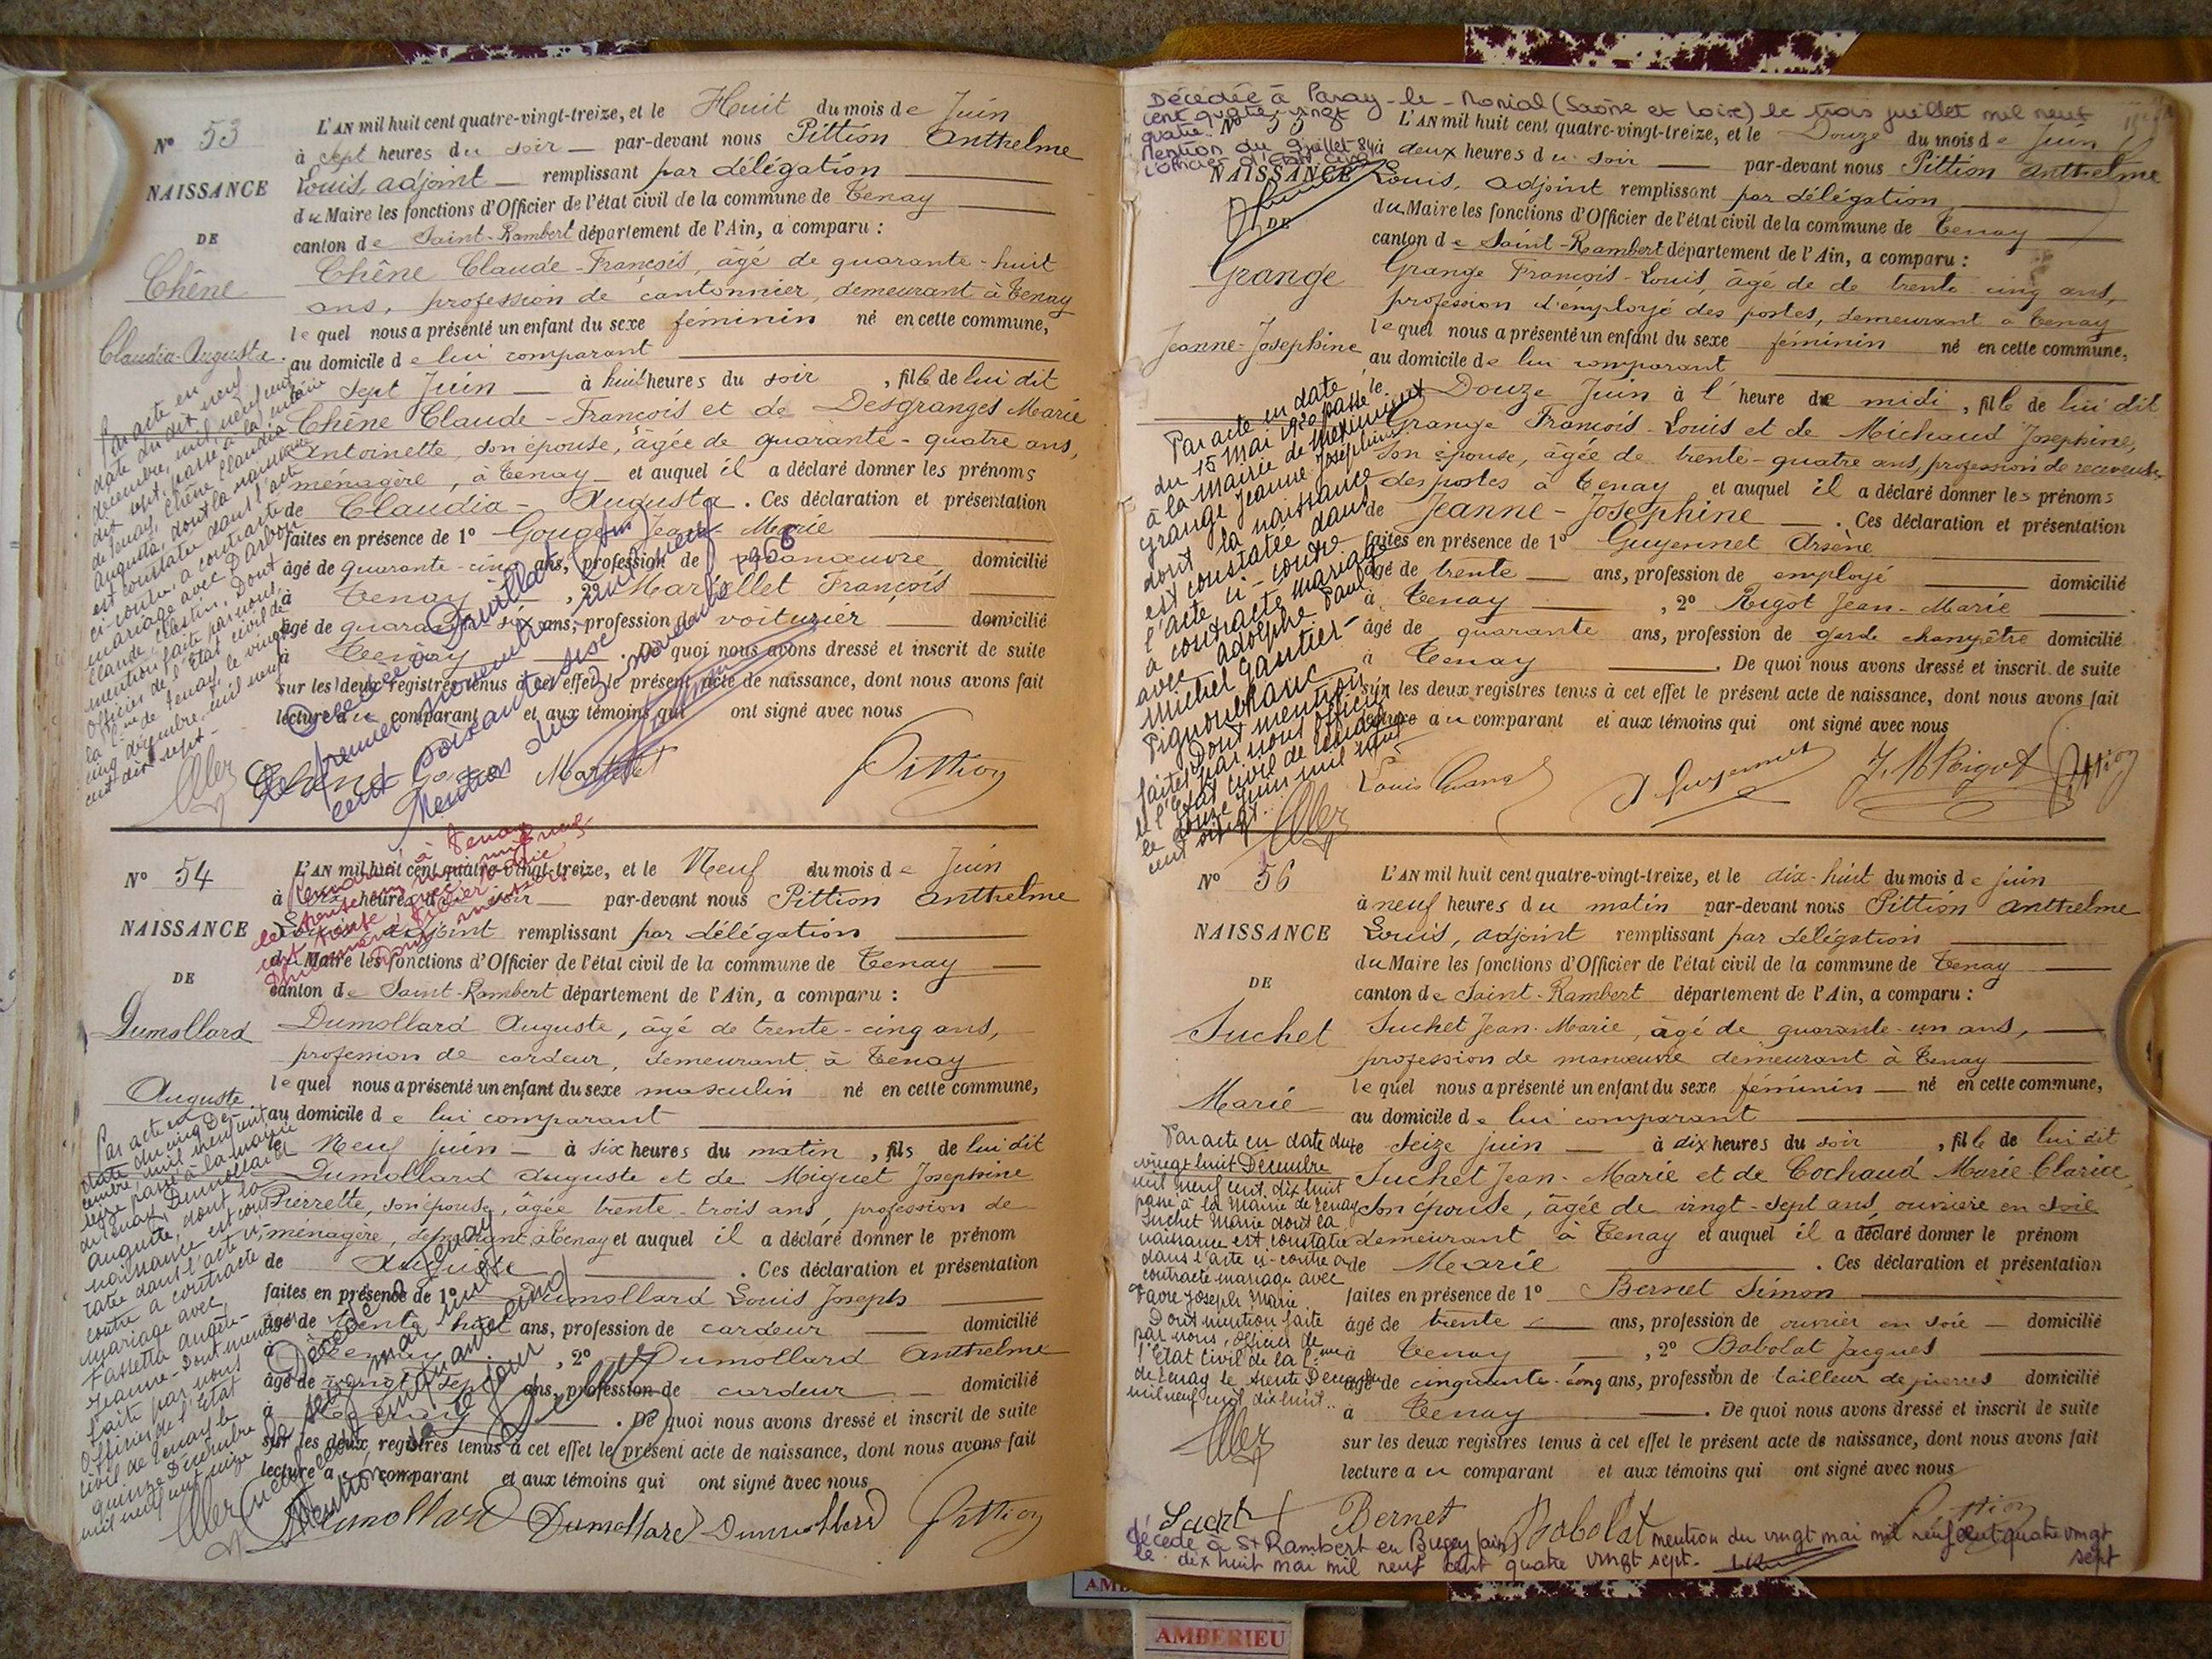 N° 53
NAISSANCE
DE
Chêne
Claudia-Augusta.
L'AN mil huit cent quatre-vingt-treize, et le Huit du mois de Juin
à sept heures du soir — par-devant nous Pittion Anthelme
Louis, adjoint — remplissant par délégation
du Maire les fonctions d'Officier de l'état civil de la commune de Tenay
canton de Saint-Rambert département de l'Ain, a comparu :
Chêne Claude-François, âgé de quarante-huit
ans, profession de cantonnier, demeurant à Tenay
lequel nous a présenté un enfant du sexe féminin né en cette commune,
au domicile de lui comparant
sept Juin — à huit heures du soir, fille de lui dit
Chêne Claude-François et de Desgranges Marie
Antoinette, son épouse, âgée de quarante-quatre ans,
ménagère, à Tenay — et auquel il a déclaré donner les prénoms
de Claudia-Augusta. Ces déclaration et présentation
faites en présence de 1° Jean-Marie
âgé de quarante-cinq ans, profession de manœuvre domicilié
à Tenay, 2° Martellet François
âgé de quarante six ans, profession de voiturier domicilié
à Tenay. De quoi nous avons dressé et inscrit de suite
sur les deux registres tenus à cet effet le présent acte de naissance, dont nous avons fait
lecture au comparant et aux témoins qui ont signé avec nous
Par acte en
date du dit neuf
décembre, mil neuf cent
dix sept, passé à la mairie
de Tenay, Chêne Claudia
Augusta, dont la naissance
est constatée dans l'acte
ci-contre, a contracté
mariage avec Darbon
Claude Célestin. Dont
mention faite par nous,
Officier de l'État civil de
la Cne de Tenay, le vingt
cinq décembre, mil neuf
cent dix sept.
Décédée à
le premier novembre mil neuf
cent soixante seize
Mention du 3 novembre 1976
Chêne Martellet Pittion
N° 54
NAISSANCE
DE
Dumollard
Auguste.
L'AN mil huit cent quatre-vingt-treize, et le Neuf du mois de Juin
à heures du soir — par-devant nous Pittion Anthelme
Louis, adjoint remplissant par délégation
du Maire les fonctions d'Officier de l'état civil de la commune de Tenay
canton de Saint-Rambert département de l'Ain, a comparu :
Dumollard Auguste, âgé de trente-cinq ans,
profession de cardeur, demeurant à Tenay
lequel nous a présenté un enfant du sexe masculin né en cette commune,
au domicile de lui comparant
le Neuf juin — à six heures du matin, fils de lui dit
Dumollard Auguste et de Miguet Josephine
Pierrette, son épouse, âgée trente-trois ans, profession de
ménagère, demeurant à Tenay et auquel il a déclaré donner le prénom
de Auguste. Ces déclaration et présentation
faites en présence de 1° Dumollard Louis Joseph
âgé de trente-huit ans, profession de cardeur domicilié
à Tenay, 2° Dumollard Anthelme
âgé de vingt sept ans, profession de cardeur domicilié
à Tenay. De quoi nous avons dressé et inscrit de suite
sur les deux registres tenus à cet effet le présent acte de naissance, dont nous avons fait
lecture au comparant et aux témoins qui ont signé avec nous
Par acte en
date du cinq Dé-
cembre, mil neuf cent
seize passé à la mairie
de Tenay, Dumollard
Auguste, dont la
naissance est cons-
tatée dans l'acte ci-
contre a contracté
mariage avec
Fassetta Angèle-
Jeanne. Dont mention
faite par nous
Officier de l'État
civil de Tenay le
quinze Décembre
mil neuf cent seize
Décédé à Tenay
le seize mai mil
neuf cent cinquante cinq
Mention de ce jour
Dumollard Dumollard Dumollard Pittion
Décédée à Paray-le-Monial (Saône et Loire) le trois juillet mil neuf
cent quatre-vingt
quatre.
Mention du 9 juillet 84
L'officier d'état civil
N° 55
NAISSANCE
DE
Grange
Jeanne-Josephine
L'AN mil huit cent quatre-vingt-treize, et le Douze du mois de Juin
à deux heures du soir — par-devant nous Pittion Anthelme
Louis, adjoint remplissant par délégation
du Maire les fonctions d'Officier de l'état civil de la commune de Tenay
canton de Saint-Rambert département de l'Ain, a comparu :
Grange François-Louis, âgé de de trente cinq ans,
profession d'employé des postes, demeurant à Tenay
lequel nous a présenté un enfant du sexe féminin né en cette commune,
au domicile de lui comparant
le Douze Juin à l'heure de midi, fille de lui dit
Grange François-Louis et de Michaud Josephine,
son épouse, âgée de trente-quatre ans, profession de receveuse
des postes à Tenay et auquel il a déclaré donner les prénoms
de Jeanne-Josephine. Ces déclaration et présentation
faites en présence de 1° Guyennet Arsène
âgé de trente ans, profession de employé domicilié
à Tenay, 2° Rigot Jean-Marie
âgé de quarante ans, profession de garde champêtre domicilié
à Tenay. De quoi nous avons dressé et inscrit de suite
sur les deux registres tenus à cet effet le présent acte de naissance, dont nous avons fait
lecture au comparant et aux témoins qui ont signé avec nous
Par acte en date
du 15 Mai 1920 passé
à la Mairie de Meximieux
Grange Jeanne Joséphine
dont la naissance
est constatée dans
l'acte ci-contre
a contracté mariage
avec Adolphe Paul
Michel Gautier-
Pignonblanc
Dont mention
faite par nous officier
de l'état civil de Tenay
le douze Juin mil neuf
cent vingt.
Louis Grange A Guyennet J. M Rigot Pittion
N° 56
NAISSANCE
DE
Suchet
Marie
L'AN mil huit cent quatre-vingt-treize, et le dix-huit du mois de juin
à neuf heures du matin par-devant nous Pittion Anthelme
Louis, adjoint remplissant par délégation
du Maire les fonctions d'Officier de l'état civil de la commune de Tenay
canton de Saint-Rambert département de l'Ain, a comparu :
Suchet Jean-Marie, âgé de quarante-un ans,
profession de manœuvre demeurant à Tenay
lequel nous a présenté un enfant du sexe féminin — né en cette commune,
au domicile de lui comparant
le seize juin — à dix heures du soir, fille de lui dit
Suchet Jean-Marie et de Cochaud Marie Clarice,
son épouse, âgée de vingt-sept ans, ouvrière en soie
demeurant à Tenay et auquel il a déclaré donner le prénom
de Marie. Ces déclaration et présentation
faites en présence de 1° Bernet Simon
âgé de trente ans, profession de ouvrier en soie — domicilié
à Tenay, 2° Babolat Jacques
âgé de cinquante-cinq ans, profession de tailleur de pierres domicilié
à Tenay. De quoi nous avons dressé et inscrit de suite
sur les deux registres tenus à cet effet le présent acte de naissance, dont nous avons fait
lecture au comparant et aux témoins qui ont signé avec nous
Par acte en date du
vingt huit Décembre
mil neuf cent dix huit
passé à la Mairie de Tenay
Suchet Marie dont la
naissance est constatée
dans l'acte ci-contre a
contracté mariage avec
Favre Joseph Marie.
Dont mention faite
par nous, Officier de
l'État Civil de la Cne
de Tenay le trente Décembre
mil neuf cent dix huit.
Suchet Bernet Babolat Pittion
décédé à St Rambert en Bugey (ain) mention du vingt mai mil neuf cent quatre vingt
le dix huit mai mil neuf cent quatre vingt sept. sept
AMBERIEU